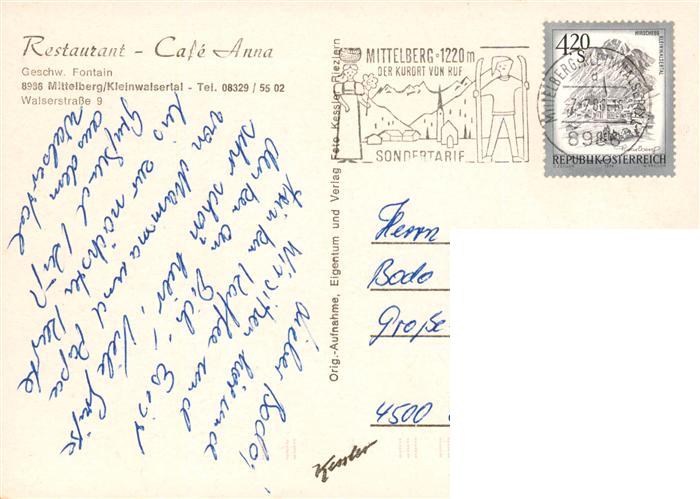 Restaurant - Café Anna
Geschw. Fontain
8986 Mittelberg/Kleinwalsertal - Tel. 08329 / 55 02
Walserstraße 9
MITTELBERG · 1220 m
DER KURORT VON RUF
SONDERTARIF
4.20
S
HIRSCHEGG
KLEINWALSERTAL
REPUBLIK ÖSTERREICH
Orig.-Aufnahme, Eigentum und Verlag Foto Kessler Riezlern
Herrn
Bodo
Große-
4500
Lieber Bodo,
Wir sitzen hier und
trinken Kaffee und
denken an Dich. Es ist
sehr schön hier,
von Mamma und Papa
bis zur nächsten
Grüße
aus dem
Walsertal
Kessler